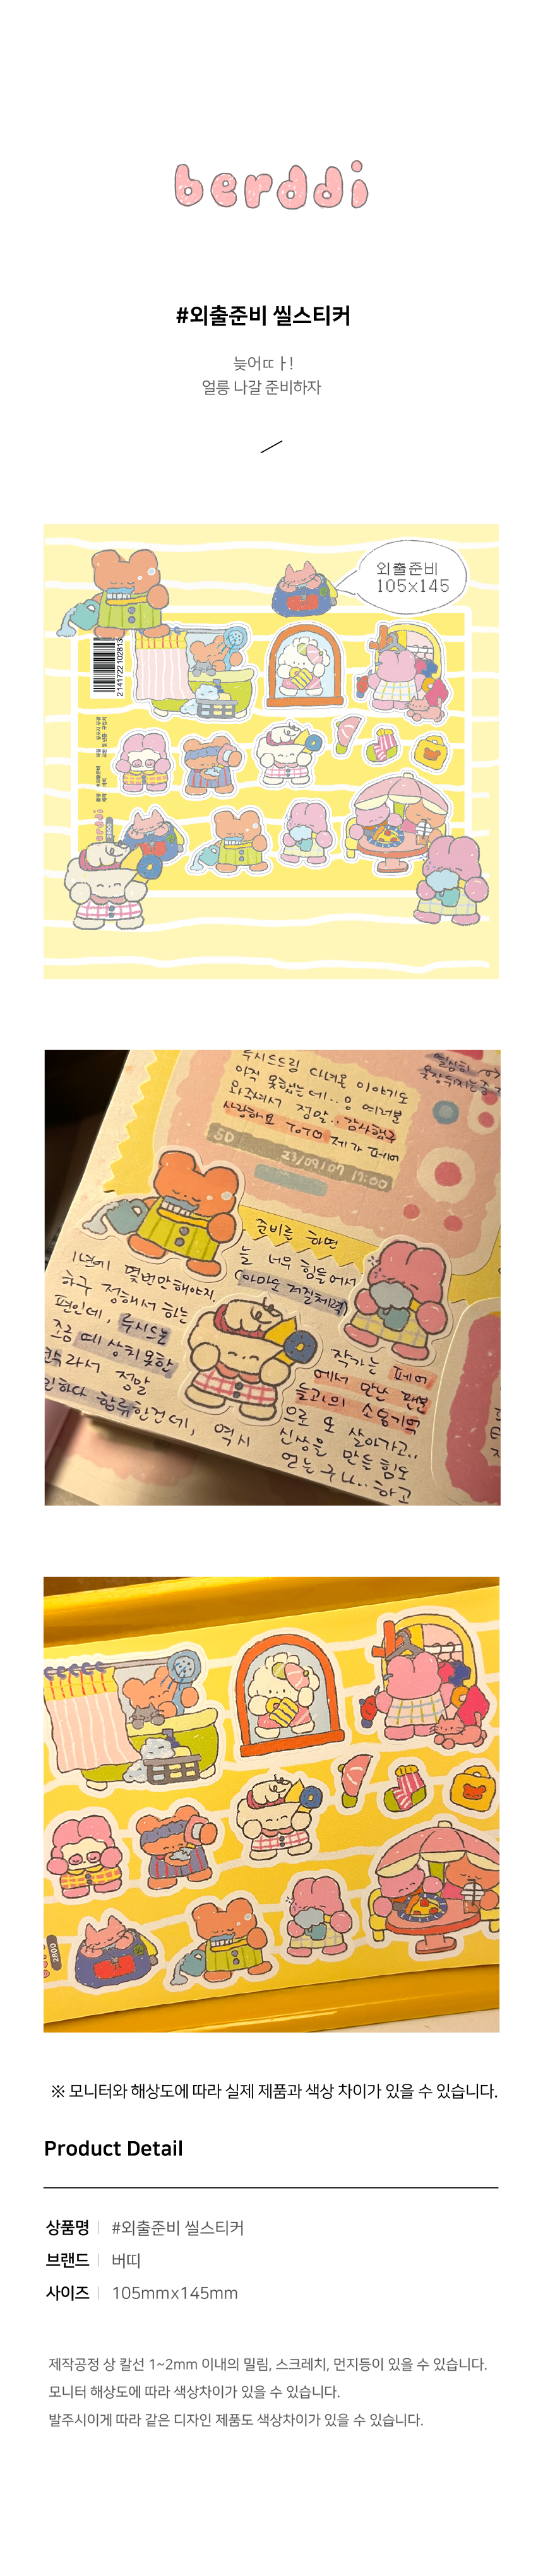 berddi
#외출준비 씰스티커
늦어ㄸㅏ!
얼릉 나갈 준비하자
외출준비
105x145
2141722102813
berddi
두시드드림 다녀온 이야기도
아직 못했는데..ㅇ 여러분
와주셔서 정말.. 감사했구
사랑해요 ToTㅇ 제가 페어
SD
23/09/07 17:00
준비를 하면
늘 너무 힘들어서
(아마도 저질체력)
1년에 몇번만 해야지,
하구 정해서 하는
편인데, 두시드는
조금 예상치 못한
라서 정말
합류한건데, 역시
작가는 페어
에서 만난 팬분
들과의 소중기억
으로 또 살아가고..
신상을 만들 힘도
얻는구나.. 하고
2800
※ 모니터와 해상도에 따라 실제 제품과 색상 차이가 있을 수 있습니다.
Product Detail
상품명 | #외출준비 씰스티커
브랜드 | 버띠
사이즈 | 105mmx145mm
제작공정 상 칼선 1~2mm 이내의 밀림, 스크레치, 먼지등이 있을 수 있습니다.
모니터 해상도에 따라 색상차이가 있을 수 있습니다.
발주시이게 따라 같은 디자인 제품도 색상차이가 있을 수 있습니다.